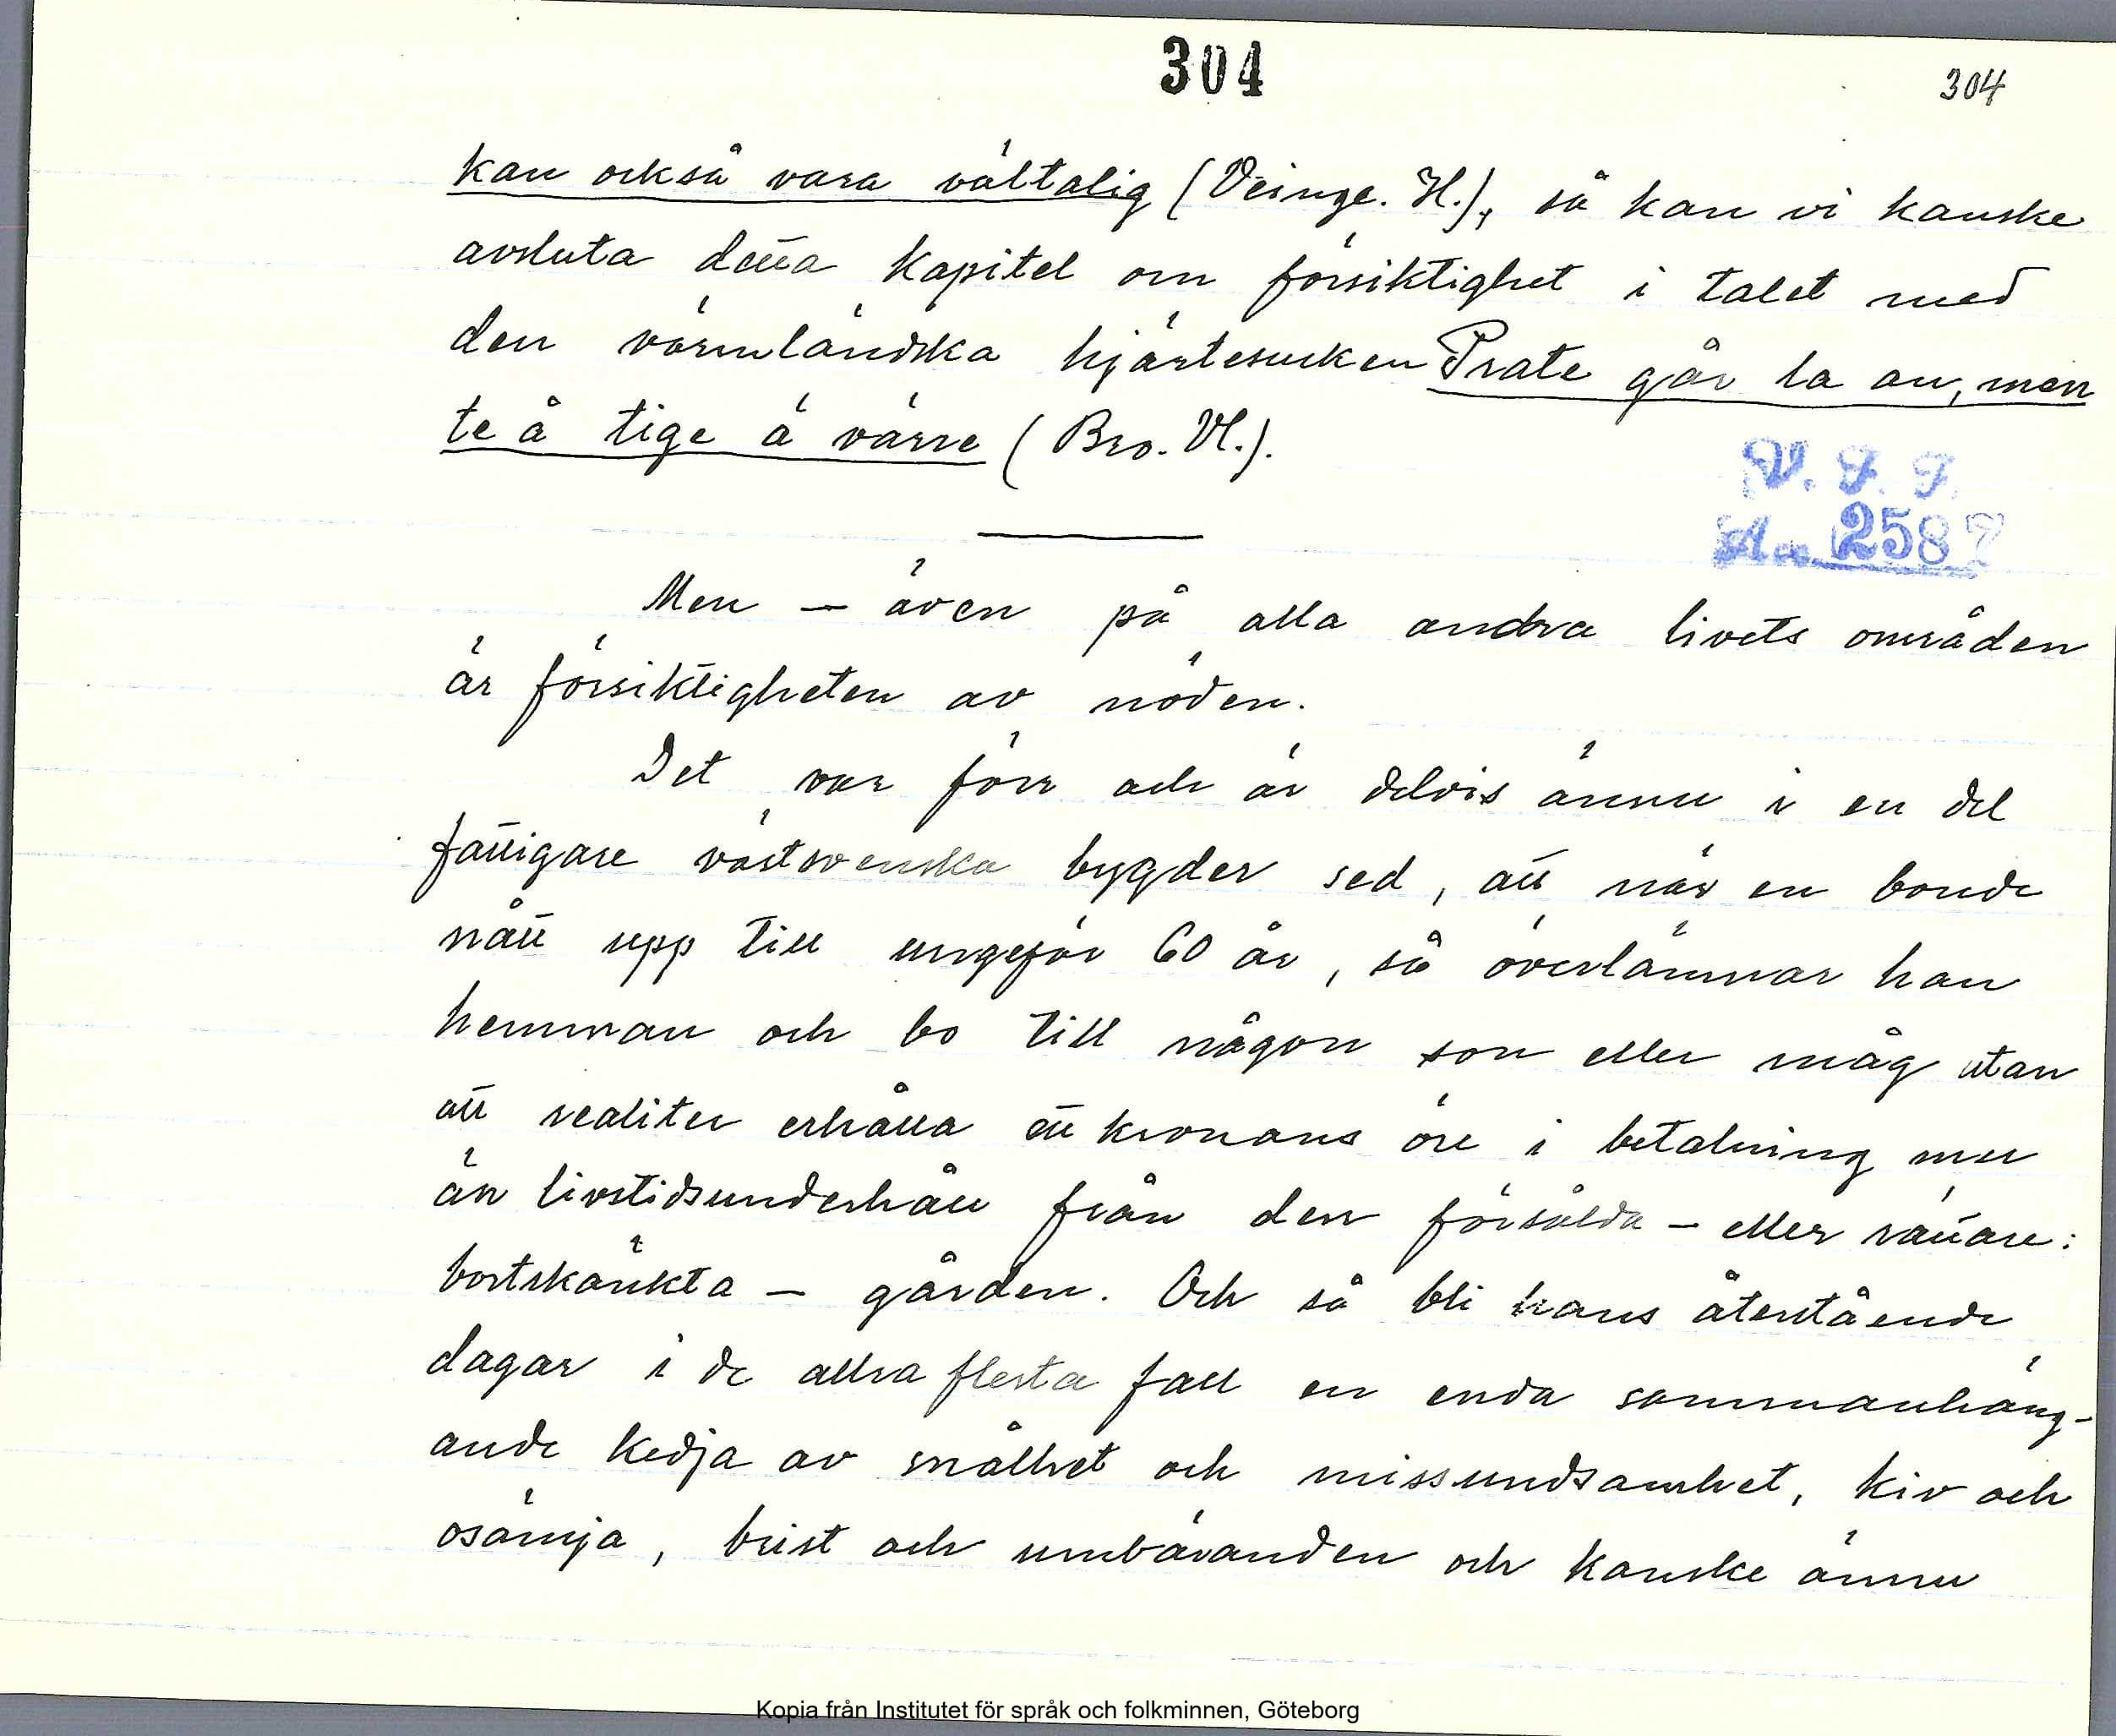 304
304
kan också vara vältalig (Veinge. H.), så kan vi kanske
avsluta detta kapitel om försiktighet i talet med
den värmländska hjärtesucken Prate går la an, men
te å tige ä värre (Bro. Vl.).
V. F. F.
Acc. 2587
Men – även på alla andra livets områden
är försiktigheten av nöden.
Det var förr och är delvis ännu i en del
fattigare västsvenska bygder sed, att när en bonde
nått upp till ungefär 60 år, så överlämnar han
hemman och bo till någon son eller måg utan
att realiter erhålla ett kronans öre i betalning mer
än livstidsunderhåll från den försålda – eller rättare:
bortskänkta – gården. Och så bli hans återstående
dagar i de allra flesta fall en enda sammanhäng-
ande kedja av snålhet och missundsamhet, kiv och
osämja, brist och umbäranden och kanske ännu
Kopia från Institutet för språk och folkminnen, Göteborg